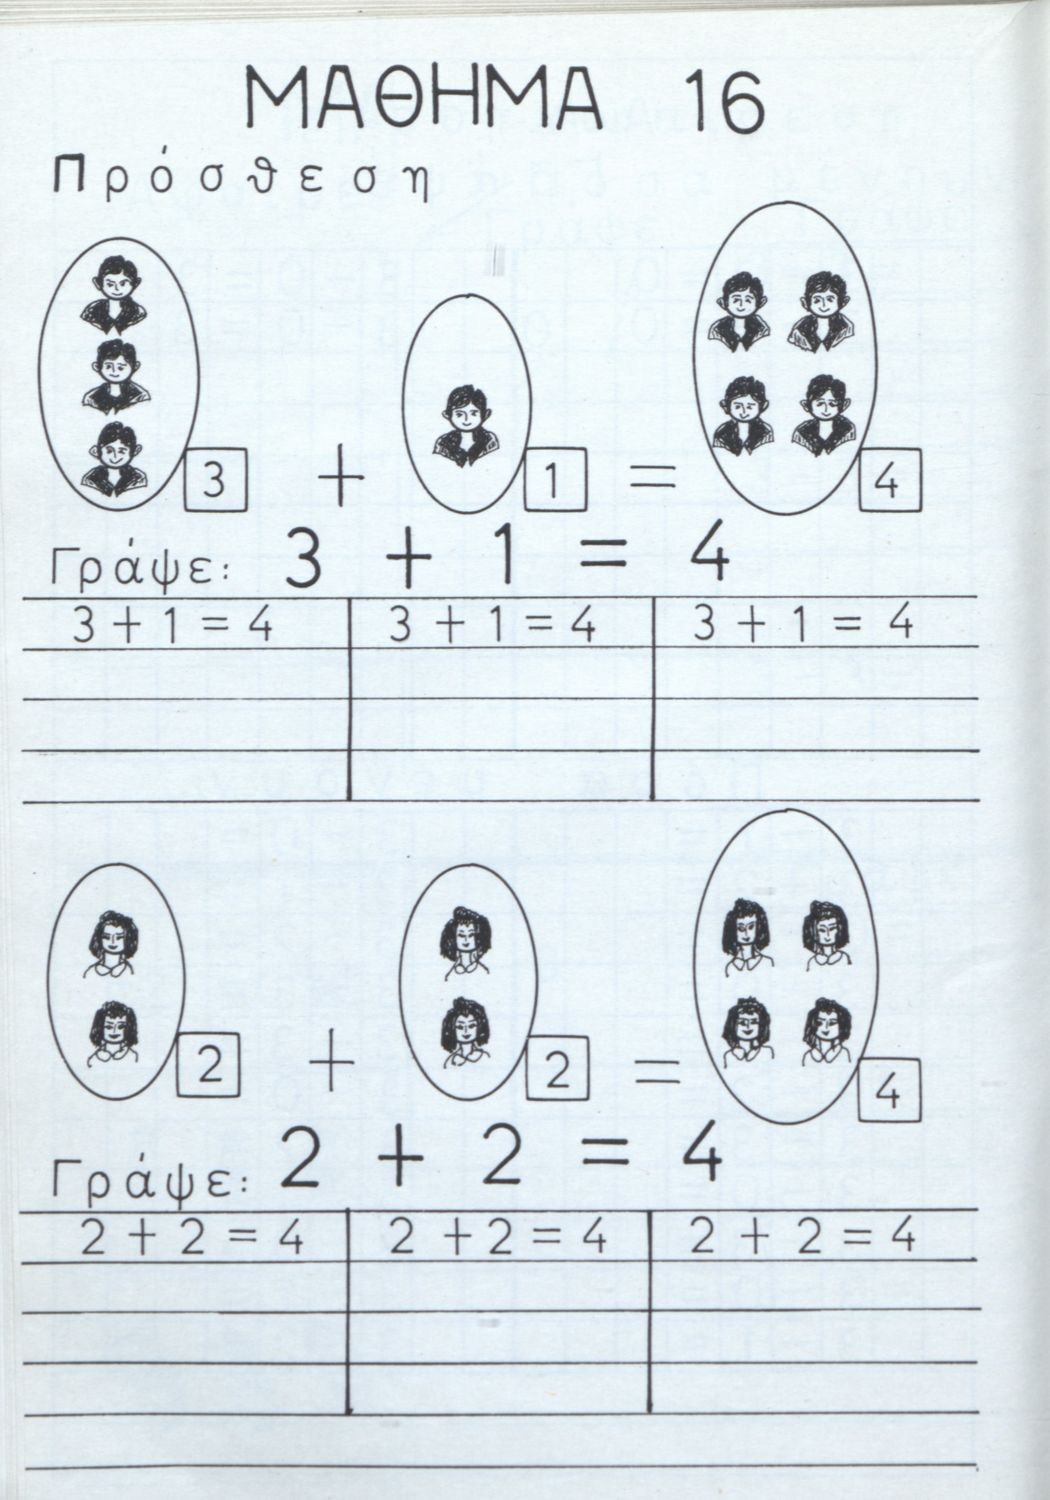 ΜΑΘΗΜΑ 16
Πρόσθεση
3 + 1 = 4
Γράψε: 3 + 1 = 4
3 + 1 = 4 3 + 1 = 4 3 + 1 = 4
2 + 2 = 4
Γράψε: 2 + 2 = 4
2 + 2 = 4 2 + 2 = 4 2 + 2 = 4